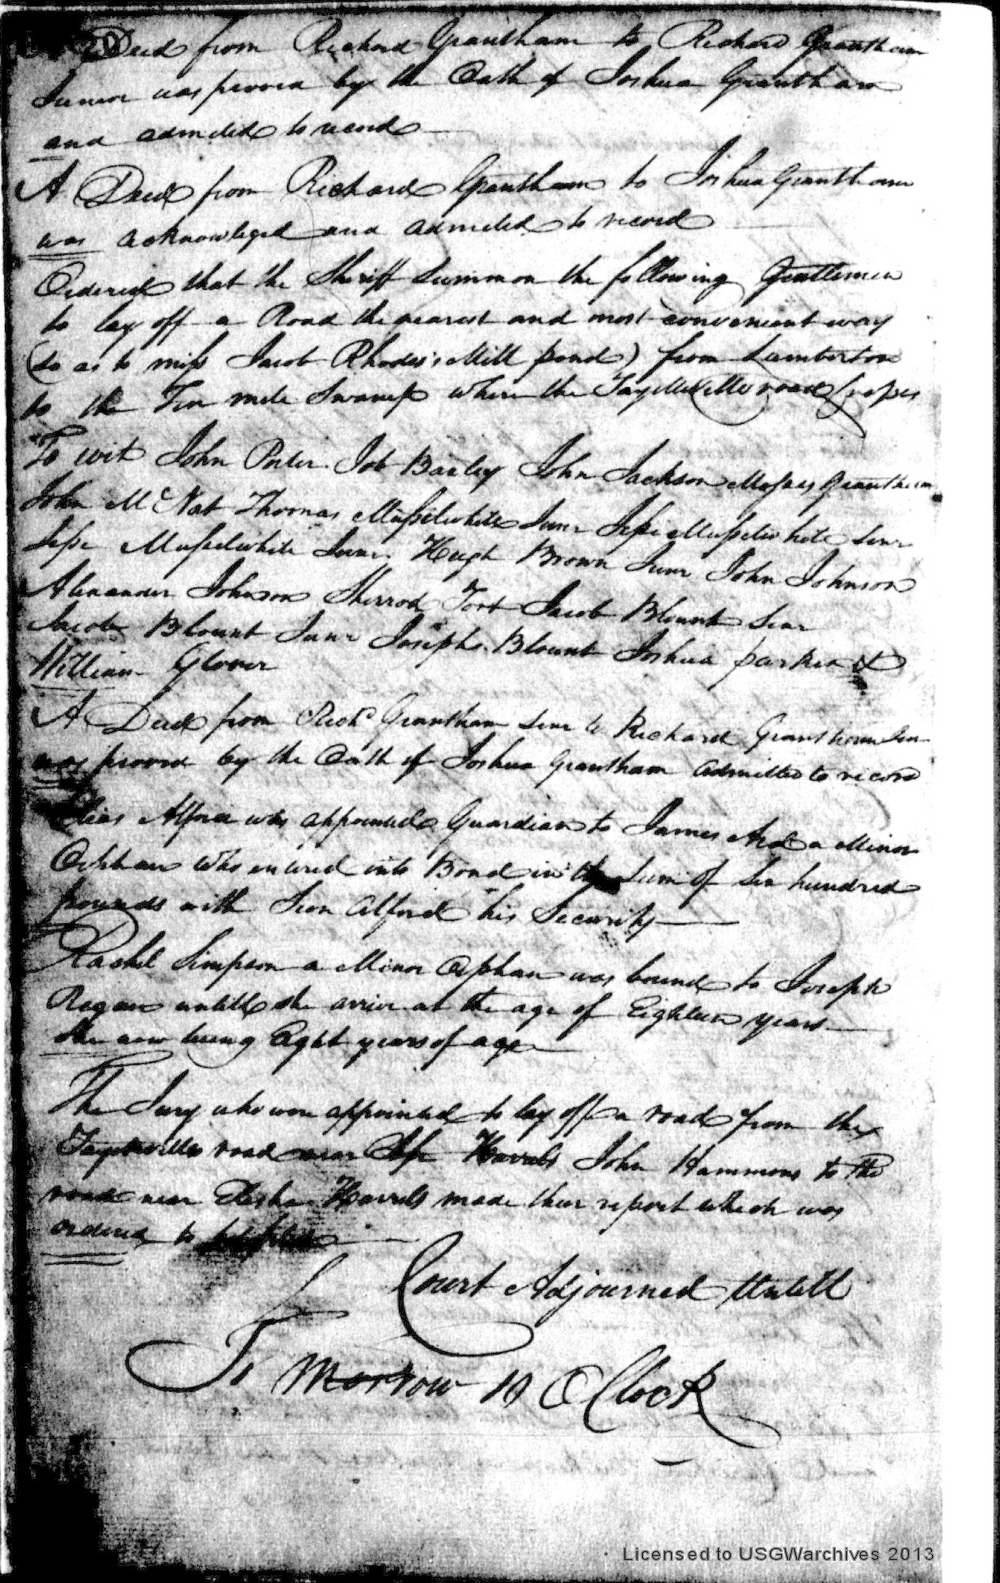 Deed from Richard Grantham to Richard Grantham
Junior was proved by the Oath of Joshua Grantham
and admited to record
A Deed from Richard Grantham to Joshua Grantham
was acknowleged and admited to record
Ordered that the Sheriff Summon the following Gentlemen
to lay off a Road the nearest and most convenient way
(so as to miss Jacob Rhodes's Mill pond) from Lumberton
to the Ten mile Swamp where the Fayetteville road Crosses
To wit John Porter Job Bailey John Jackson Moses Grantham
John McNat Thomas Musselwhite Junr Jesse Musselwhite Senr
Jesse Musselwhite Junr Hugh Brown Junr John Johnson
Alexander Johnson Sherrod Fort Jacob Blount Senr
Jacob Blount Junr Joseph Blount Joshua Parker &
William Glover
A Deed from Richd Grantham Senr to Richard Grantham
was proved by the Oath of Joshua Grantham admitted to record
Elias Alford was appointed Guardian to James a Minor
Orphan who entered into Bond in the Sum of Six hundred
pounds with Sion Alford his Security
Rachel Simpson a Minor Orphan was bound to Joseph
Regan untill she arrive at the age of Eighteen years
She now being Eight years of age
The Jury who were appointed to lay off a road from the
Fayetteville road near John Hammons to the
road near Elisha Harrels made their report which was
ordered to
Court Adjourned Untill
To Morrow 10 O Clock
Licensed to USGWarchives 2013